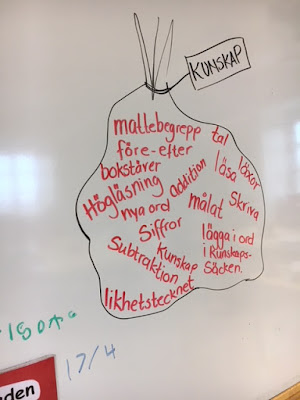 KUNSKAP
mattebegrepp
tal
före-efter
läxor
bokstäver
läsa
Högläsning
addition
nya ord
målat
Skriva
Siffror
lägga i ord
i Kunskaps-
Säcken.
Kunskap
Subtraktion
likhetstecknet
17/4
nden